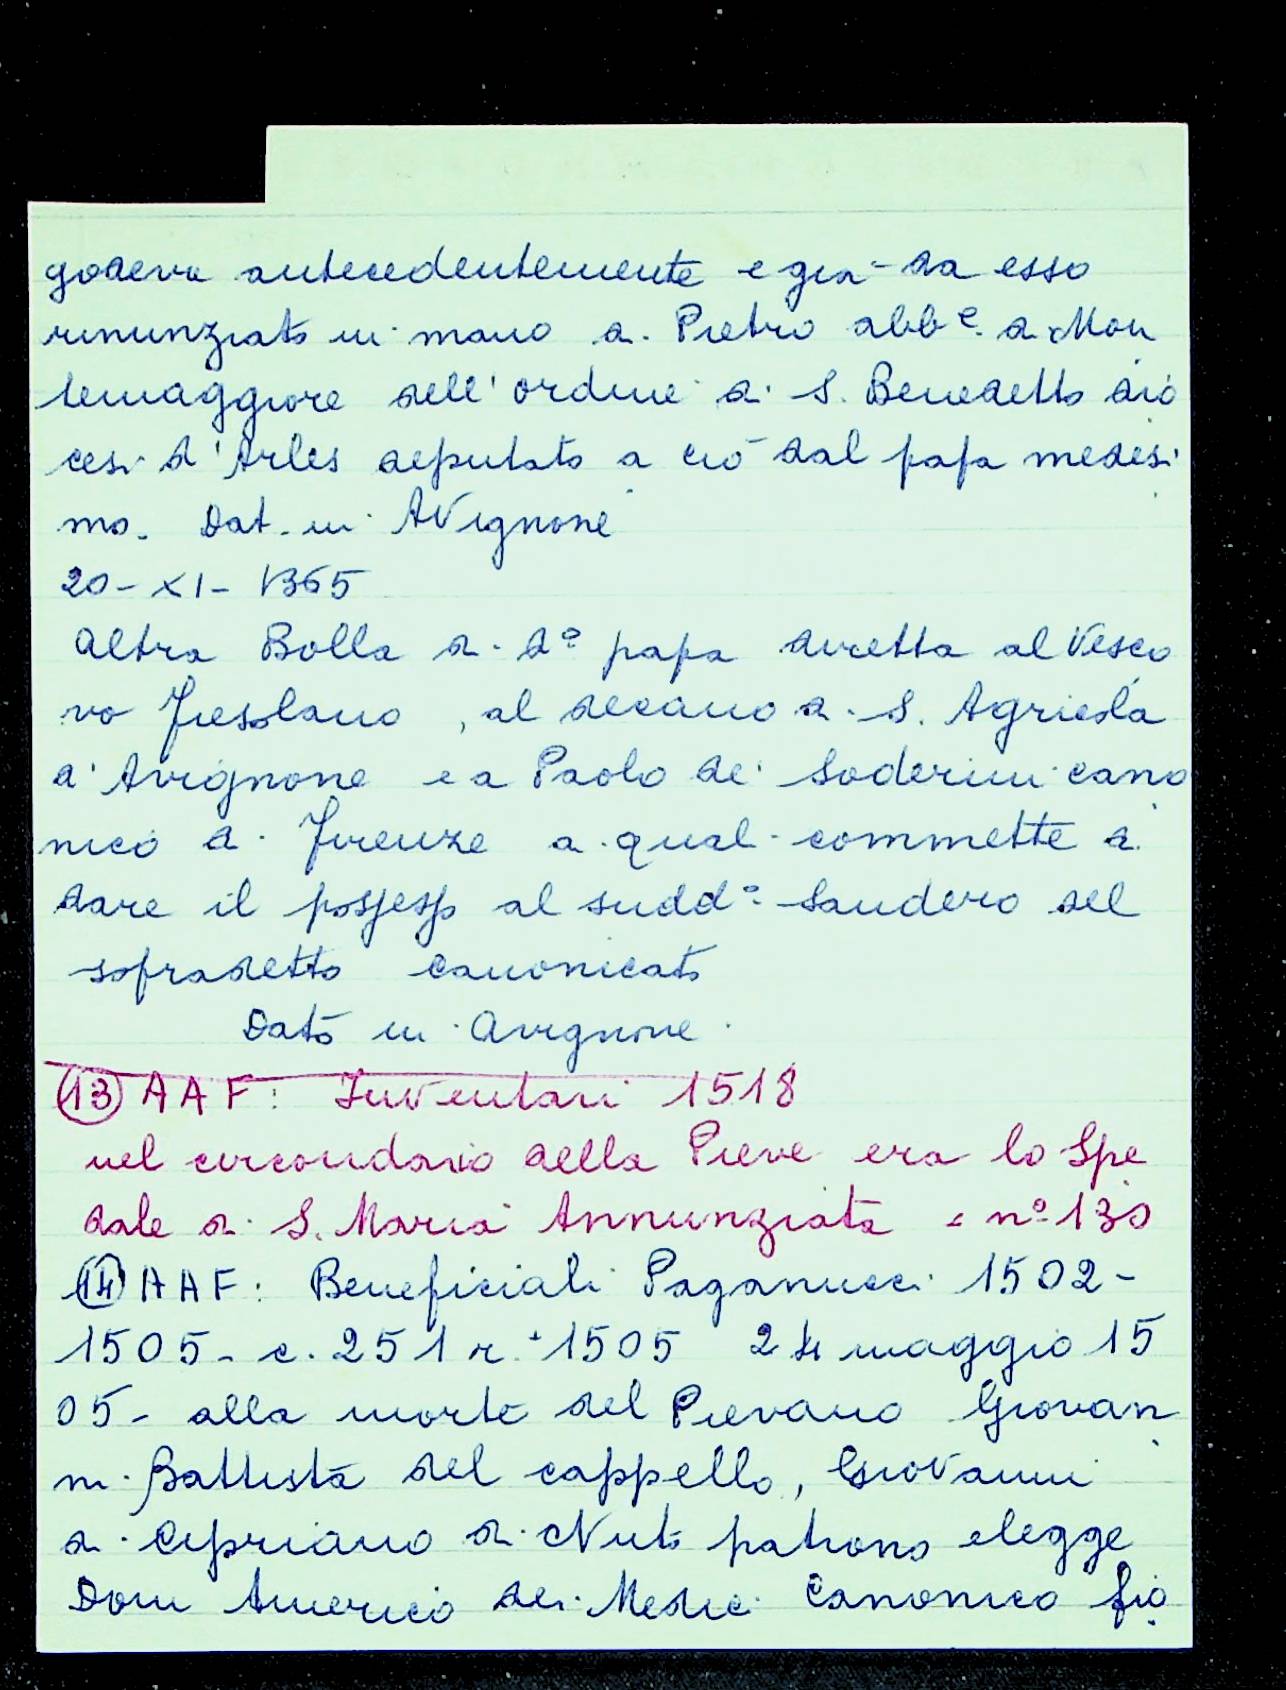 godeva antecedentemente e già da esso
rinunziato in mano di Pietro abb.e di Mon
temaggiore dell'ordine di S. Benedetto dio
cesi d'Arles deputato a ciò dal papa medesi
mo. Dat. in Avignone
20-XI-1365
Altra Bolla di d.o papa diretta al Vesco
vo Fiesolano, al decano di S. Agricola
d'Avignone e a Paolo de' Soderini cano
nico di Firenze ai quali commette di
dare il possesso al sudd.o Sandero del
sopradetto canonicato
Dato in Avignone
13 AAF: Inventari 1518
nel circondario della Pieve era lo Spe
dale di S. Maria Annunziata = n.o 130
14 AAF: Beneficiali Paganucci 1502-
1505 - c. 251 r. 1505 24 maggio 15
05 - alla morte del Pievano Giovan
ni Battista del cappello, Giovanni
di Cipriano di Nuto patrono elegge
Dom Americo dei Medici Canonico fio